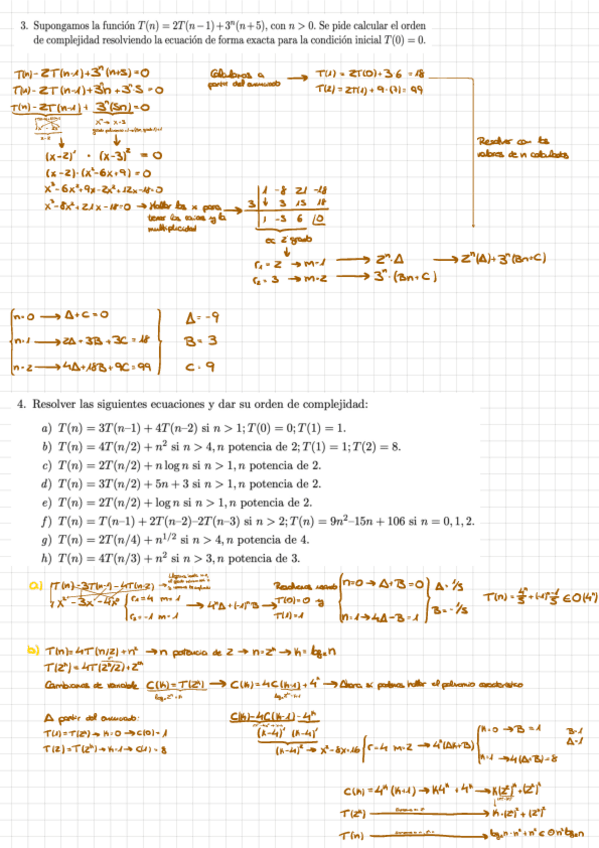 3. Supongamos la función T(n) = 2T(n−1)+3ⁿ(n+5), con n > 0. Se pide calcular el orden
de complejidad resolviendo la ecuación de forma exacta para la condición inicial T(0) = 0.
T(n)-2T(n-1)+3ⁿ(n+5)=0
T(n)-2T(n-1)+3ⁿn+3ⁿ5=0
T(n)-2T(n-1)+ 3ⁿ(5n)=0
(x-2)¹ · (x-3)² = 0
(x-2)·(x²-6x+9)=0
x³-6x²+9x-2x²+12x-18=0
x³-8x²+21x-18=0 → Hallar las x para
tener las raíces y la
multiplicidad
→ T(1) = 2T(0)+36 = 18
T(2) = 2T(1)+9·(7) = 99
Resolver con los
valores de n calculados
1 -8 21 -18
3 ↓ 3 -15 18
1 -5 6 0
ec 2º grado
r₁ = 2 → m=1 → 2ⁿ·A → 2ⁿ(A)+3ⁿ(Bn+C)
r₂ = 3 → m=2 → 3ⁿ·(Bn+C)
n=0 → A+C=0 A = -9
n=1 → 2A+3B+3C=18 B = 3
n=2 → 4A+18B+9C=99 C = 9
4. Resolver las siguientes ecuaciones y dar su orden de complejidad:
a) T(n) = 3T(n–1) + 4T(n–2) si n > 1; T(0) = 0; T(1) = 1.
b) T(n) = 4T(n/2) + n² si n > 4, n potencia de 2; T(1) = 1; T(2) = 8.
c) T(n) = 2T(n/2) + n log n si n > 1, n potencia de 2.
d) T(n) = 3T(n/2) + 5n + 3 si n > 1, n potencia de 2.
e) T(n) = 2T(n/2) + log n si n > 1, n potencia de 2.
f) T(n) = T(n–1) + 2T(n–2)–2T(n–3) si n > 2; T(n) = 9n²–15n + 106 si n = 0, 1, 2.
g) T(n) = 2T(n/4) + n^{1/2} si n > 4, n potencia de 4.
h) T(n) = 4T(n/3) + n² si n > 3, n potencia de 3.
a) T(n)-3T(n-1)-4T(n-2)
r₁=4 m=1
r₂=-1 m=1
→ 4ⁿA+(-1)ⁿB →
T(0)=0 y
T(1)=1
n=0 → A+B=0 A=1/5
n=1 → 4A-B=1 B=-1/5
b) T(n)=4T(n/2)+n² → n potencia de 2 → n=2ᵏ → k=log₂n
T(2ᵏ)=4T(2ᵏ/2)+2²ᵏ
Cambiamos de variable C(k)=T(2ᵏ) → C(k)=4C(k-1)+4ᵏ → Ahora si podemos hallar el polinomio característico
A partir del enunciado:
T(1)=T(2ᵏ) → k=0 → C(0)=1
T(2)=T(2ᵏ) → k=1 → C(1)=8
C(k)-4C(k-1)-4ᵏ
(k-4)¹ (k-4)¹
(k-4)² → x²-8x+16 r=4 m=2 → 4ᵏ(Ak+B)
k=0 → B=1 B=1
k=1 → 4(A+B)=8 A=1
C(k)=4ᵏ(k+1) → k4ᵏ+4ᵏ → k(2²)ᵏ+(2²)ᵏ
T(2ᵏ) → k·(2ᵏ)²+(2ᵏ)²
T(n) → log₂n·n²+n² ∈ Θn²log₂n